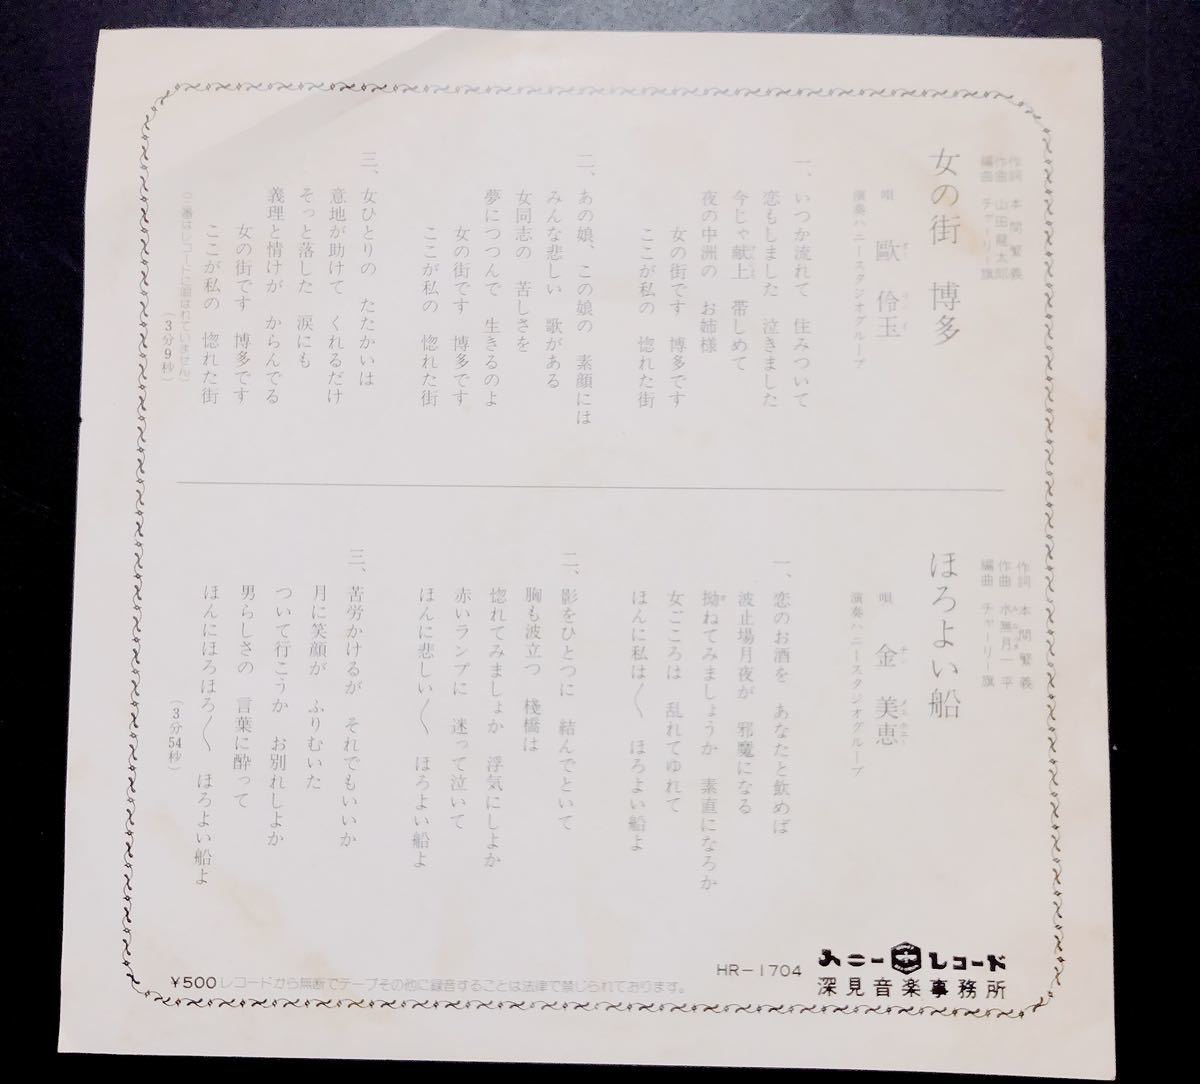 女の街 博多
作詞 本間繁義
作曲 山田龍太郎
編曲 チャーリー旗
唄 歐 伶玉
演奏ハニースタジオグループ
一、いつか流れて 住みついて
恋もしました 泣きました
今じゃ献上 帯しめて
夜の中洲の お姉様
女の街です 博多です
ここが私の 惚れた街
二、あの娘、この娘の 素顔には
みんな悲しい 歌がある
女同志の 苦しさを
夢につつんで 生きるのよ
女の街です 博多です
ここが私の 惚れた街
三、女ひとりの たたかいは
意地が助けて くれるだけ
そっと落した 涙にも
義理と情けが からんでる
女の街です 博多です
ここが私の 惚れた街
(二番はレコードに唄はれていません)
(3分9秒)
ほろよい船
作詞 本間繁義
作曲 水無月一平
編曲 チャーリー旗
唄 金 美恵
演奏ハニースタジオグループ
一、恋のお酒を あなたと飲めば
波止場月夜が 邪魔になる
拗ねてみましょうか 素直になろか
女ごころは 乱れてゆれて
ほんに私は〱 ほろよい船よ
二、影をひとつに 結んでといて
胸も波立つ 棧橋は
惚れてみましょか 浮気にしよか
赤いランプに 迷って泣いて
ほんに悲しい〱 ほろよい船よ
三、苦労かけるが それでもいいか
月に笑顔が ふりむいた
ついて行こうか お別れしよか
男らしさの 言葉に酔って
ほんにほろほろ〱 ほろよい船よ
(3分54秒)
HR-1704
ハニーレコード
深見音楽事務所
¥500レコードから無断でテープその他に録音することは法律で禁じられております。